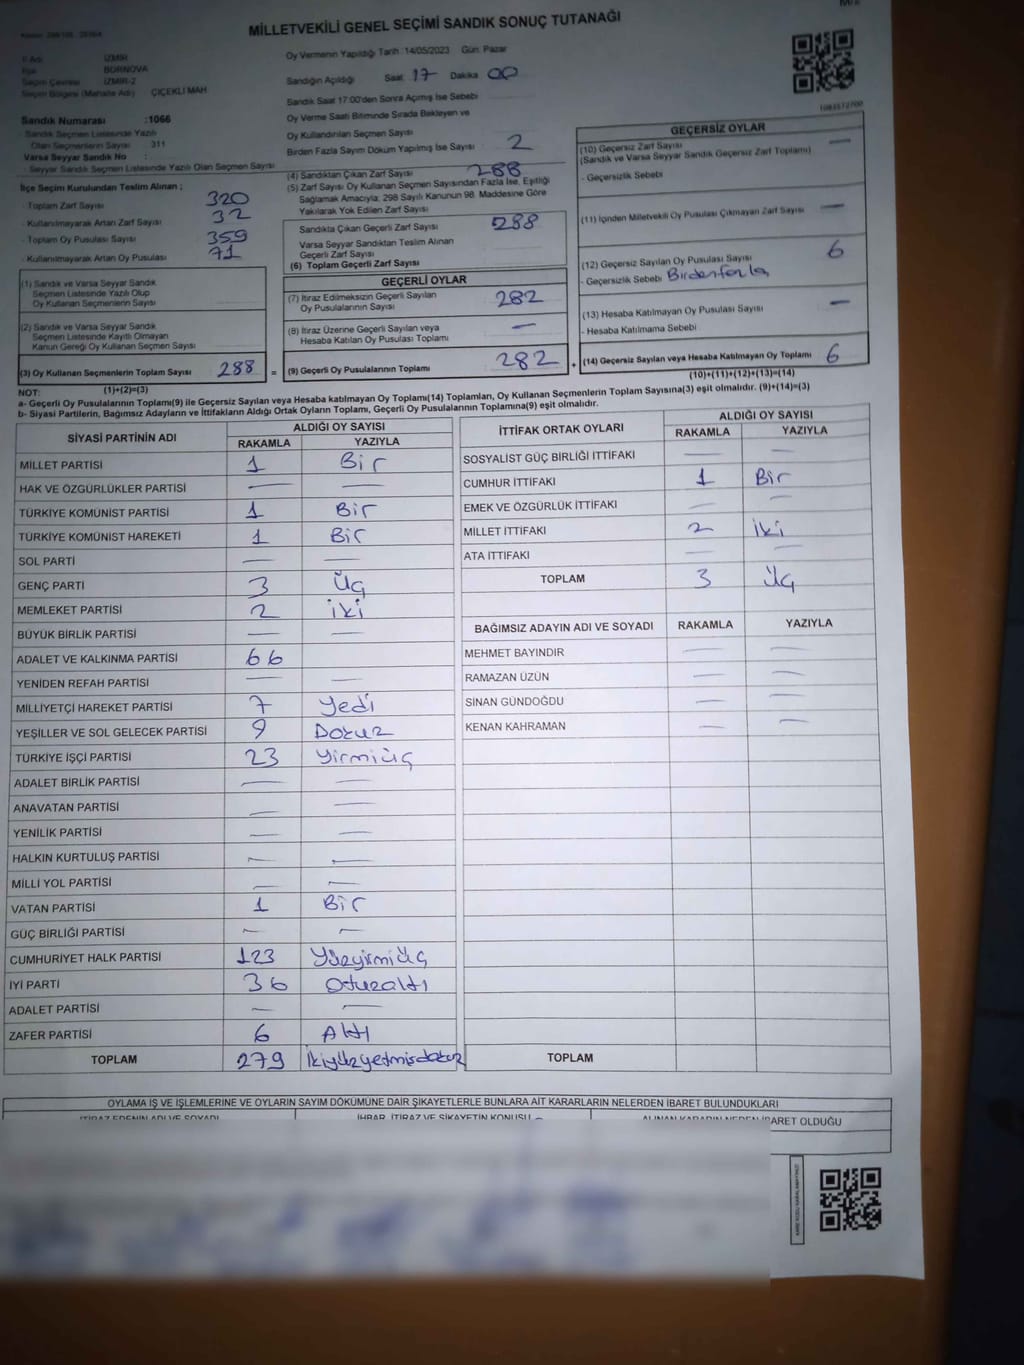 MİLLETVEKİLİ GENEL SEÇİMİ SANDIK SONUÇ TUTANAĞI
İl Adı İZMİR
İlçe BORNOVA
Seçim Çevresi İZMİR-2
Seçim Bölgesi (Mahalle Adı) ÇİÇEKLİ MAH
Sandık Numarası :1066
Sandık Seçmen Listesinde Yazılı
Olan Seçmenlerin Sayısı 311
Varsa Seyyar Sandık No :
Seyyar Sandık Seçmen Listesinde Yazılı Olan Seçmen Sayısı
İlçe Seçim Kurulundan Teslim Alınan ;
- Toplam Zarf Sayısı 320
- Kullanılmayarak Artan Zarf Sayısı 32
- Toplam Oy Pusulası Sayısı 359
- Kullanılmayarak Artan Oy Pusulası 71
(1) Sandık ve Varsa Seyyar Sandık
Seçmen Listesinde Yazılı Olup
Oy Kullanan Seçmenlerin Sayısı
(2) Sandık ve Varsa Seyyar Sandık
Seçmen Listesinde Kayıtlı Olmayan
Kanun Gereği Oy Kullanan Seçmen Sayısı
(3) Oy Kullanan Seçmenlerin Toplam Sayısı 288 =
(1)+(2)=(3)
Oy Vermenin Yapıldığı Tarih :14/05/2023 Gün: Pazar
Sandığın Açıldığı Saat 17 Dakika 00
Sandık Saat 17:00'den Sonra Açılmış İse Sebebi
Oy Verme Saati Bitiminde Sırada Bekleyen ve
Oy Kullandırılan Seçmen Sayısı
Birden Fazla Sayım Döküm Yapılmış İse Sayısı 2
(4) Sandıktan Çıkan Zarf Sayısı 288
(5) Zarf Sayısı Oy Kullanan Seçmen Sayısından Fazla İse, Eşitliği
Sağlamak Amacıyla; 298 Sayılı Kanunun 98. Maddesine Göre
Yakılarak Yok Edilen Zarf Sayısı
Sandıkta Çıkan Geçerli Zarf Sayısı 288
Varsa Seyyar Sandıktan Teslim Alınan
Geçerli Zarf Sayısı
(6) Toplam Geçerli Zarf Sayısı
GEÇERLİ OYLAR
(7) İtiraz Edilmeksizin Geçerli Sayılan
Oy Pusulalarının Sayısı 282
(8) İtiraz Üzerine Geçerli Sayılan veya
Hesaba Katılan Oy Pusulası Toplamı —
(9) Geçerli Oy Pusulalarının Toplamı 282 +
GEÇERSİZ OYLAR
(10) Geçersiz Zarf Sayısı —
(Sandık ve Varsa Seyyar Sandık Geçersiz Zarf Toplamı)
- Geçersizlik Sebebi
(11) İçinden Milletvekili Oy Pusulası Çıkmayan Zarf Sayısı —
(12) Geçersiz Sayılan Oy Pusulası Sayısı 6
- Geçersizlik Sebebi Birden fazla
(13) Hesaba Katılmayan Oy Pusulası Sayısı —
- Hesaba Katılmama Sebebi
(14) Geçersiz Sayılan veya Hesaba Katılmayan Oy Toplamı 6
(10)+(11)+(12)+(13)=(14)
NOT:
a- Geçerli Oy Pusulalarının Toplamı(9) ile Geçersiz Sayılan veya Hesaba katılmayan Oy Toplamı(14) Toplamları, Oy Kullanan Seçmenlerin Toplam Sayısına(3) eşit olmalıdır. (9)+(14)=(3)
b- Siyasi Partilerin, Bağımsız Adayların ve İttifakların Aldığı Ortak Oyların Toplamı, Geçerli Oy Pusulalarının Toplamına(9) eşit olmalıdır.
SİYASİ PARTİNİN ADI ALDIĞI OY SAYISI
RAKAMLA YAZIYLA
MİLLET PARTİSİ 1 Bir
HAK VE ÖZGÜRLÜKLER PARTİSİ — —
TÜRKİYE KOMÜNİST PARTİSİ 1 Bir
TÜRKİYE KOMÜNİST HAREKETİ 1 Bir
SOL PARTİ — —
GENÇ PARTİ 3 Üç
MEMLEKET PARTİSİ 2 iki
BÜYÜK BİRLİK PARTİSİ — —
ADALET VE KALKINMA PARTİSİ 66
YENİDEN REFAH PARTİSİ — —
MİLLİYETÇİ HAREKET PARTİSİ 7 Yedi
YEŞİLLER VE SOL GELECEK PARTİSİ 9 Dokuz
TÜRKİYE İŞÇİ PARTİSİ 23 Yirmiüç
ADALET BİRLİK PARTİSİ — —
ANAVATAN PARTİSİ — —
YENİLİK PARTİSİ — —
HALKIN KURTULUŞ PARTİSİ — —
MİLLİ YOL PARTİSİ — —
VATAN PARTİSİ 1 Bir
GÜÇ BİRLİĞİ PARTİSİ — —
CUMHURİYET HALK PARTİSİ 123 Yüzyirmiüç
İYİ PARTİ 36 Otuzaltı
ADALET PARTİSİ — —
ZAFER PARTİSİ 6 Altı
TOPLAM 279 İkiyüzyetmişdokuz
İTTİFAK ORTAK OYLARI ALDIĞI OY SAYISI
RAKAMLA YAZIYLA
SOSYALİST GÜÇ BİRLİĞİ İTTİFAKI — —
CUMHUR İTTİFAKI 1 Bir
EMEK VE ÖZGÜRLÜK İTTİFAKI — —
MİLLET İTTİFAKI 2 iki
ATA İTTİFAKI — —
TOPLAM 3 Üç
BAĞIMSIZ ADAYIN ADI VE SOYADI RAKAMLA YAZIYLA
MEHMET BAYINDIR — —
RAMAZAN ÜZÜN — —
SİNAN GÜNDOĞDU — —
KENAN KAHRAMAN — —
TOPLAM
OYLAMA İŞ VE İŞLEMLERİNE VE OYLARIN SAYIM DÖKÜMÜNE DAİR ŞİKAYETLERLE BUNLARA AİT KARARLARIN NELERDEN İBARET BULUNDUKLARI
İTİRAZ EDENİN ADI VE SOYADI İHBAR, İTİRAZ VE ŞİKAYETİN KONUSU ALINAN KARARIN NEDEN İBARET OLDUĞU